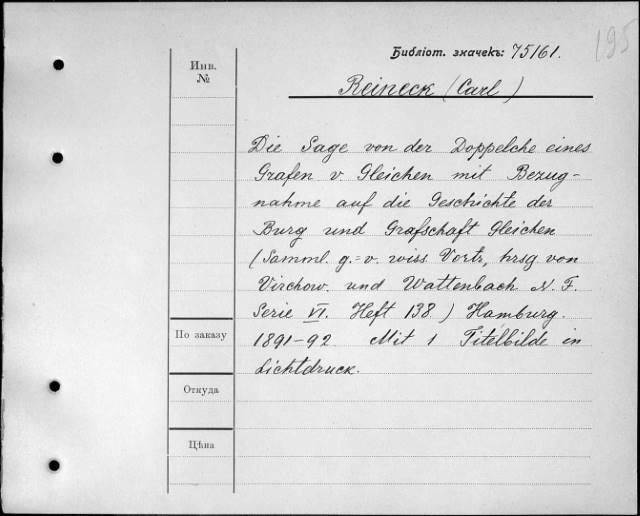 195
Библіот. значекъ: 75/61.
Инв.
№
Reineck (Carl)
Die Sage von der Doppelehe eines
Grafen v. Gleichen mit Bezug-
nahme auf die Geschichte der
Burg und Grafschaft Gleichen
(Samml. g.=v. wiss. Vortr, hrsg von
Virchow. und Wattenbach N. F.
Serie VI. Heft 138.) Hamburg.
По заказу
1891-92. Mit 1 Titelbilde in
Lichtdruck.
Откуда
Цѣна